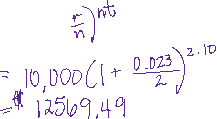 r/n)^nt
= 10,000(1 + 0.023/2)^2.10
= $12569.49